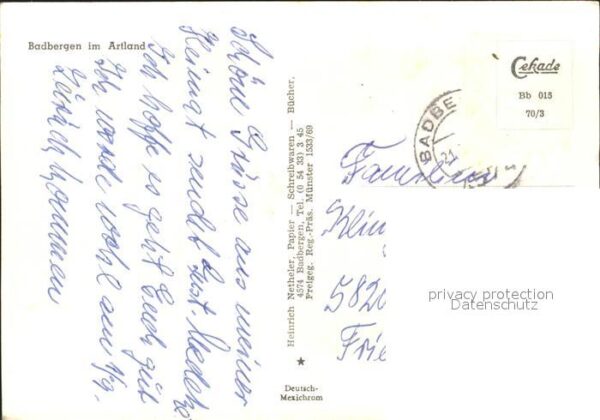 Badbergen im Artland
Schöne Grüsse aus meiner
Heimat sendet
Ich hoffe es geht Euch gut
Ich werde wohl am
zurück kommen
Heinrich Netheler, Papier — Schreibwaren — Bücher,
4574 Badbergen, Tel. (0 54 33) 3 45
Freigeg. Reg.-Präs. Münster 1533/69
Deutsch-
Mexichrom
Cekade
Bb 015
70/3
BADBE
Familie
582
Frie
privacy protection
Datenschutz